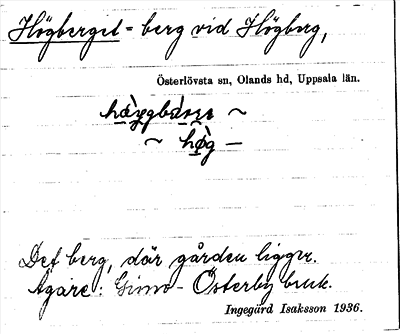 Högberget = berg vid Högberg,
Österlövsta sn, Olands hd, Uppsala län.
~
~ hø̀g –
Det berg, där gården ligger.
Ägare: Gimo-Österby bruk.
Ingegärd Isaksson 1936.